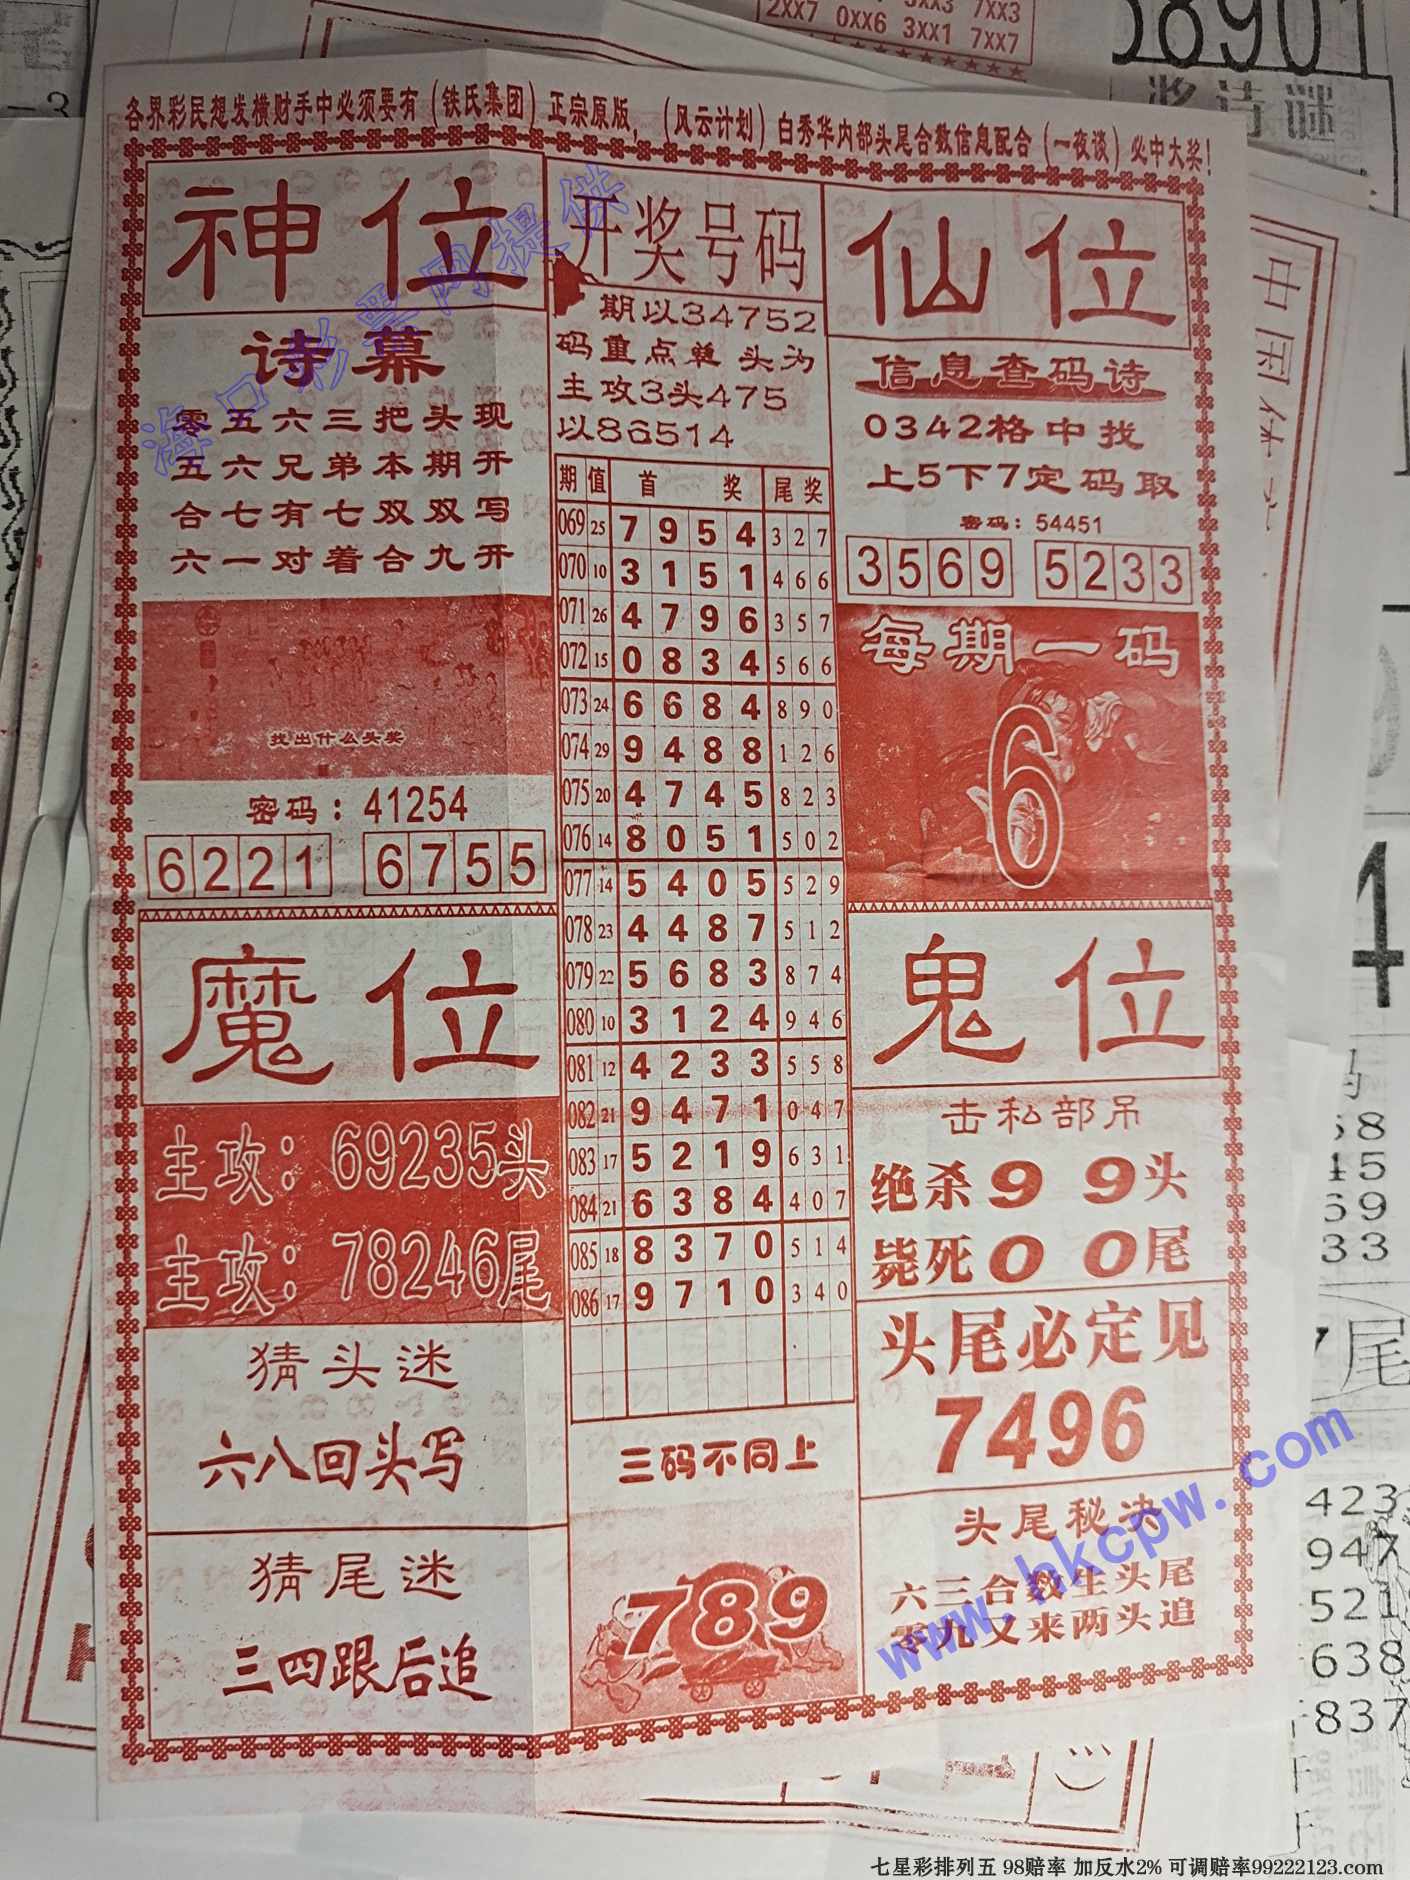 2XX7 0XX6 3XX1 7XX7
各界彩民想发横财手中必须要有（铁氏集团）正宗原版，（风云计划）白秀华内部头尾合数信息配合（一夜谈）必中大奖！
神位
诗幕
零五六三把头现
五六兄弟本期开
合七有七双双写
六一对着合九开
找出什么头奖
密码：41254
6221 6755
魔位
主攻：69235头
主攻：78246尾
猜头迷
六八回头写
猜尾迷
三四跟后追
开奖号码
期以34752
码重点单头为
主攻3头475
以86514
期 值 首奖 尾奖
069 25 7 9 5 4 3 2 7
070 10 3 1 5 1 4 6 6
071 26 4 7 9 6 3 5 7
072 15 0 8 3 4 5 6 6
073 24 6 6 8 4 8 9 0
074 29 9 4 8 8 1 2 6
075 20 4 7 4 5 8 2 3
076 14 8 0 5 1 5 0 2
077 14 5 4 0 5 5 2 9
078 23 4 4 8 7 5 1 2
079 22 5 6 8 3 8 7 4
080 10 3 1 2 4 9 4 6
081 12 4 2 3 3 5 5 8
082 21 9 4 7 1 0 4 7
083 17 5 2 1 9 6 3 1
084 21 6 3 8 4 4 0 7
085 18 8 3 7 0 5 1 4
086 17 9 7 1 0 3 4 0
三码不同上
789
仙位
信息查码诗
0342格中找
上5下7定码取
密码：54451
3569 5233
每期一码
6
鬼位
击私部吊
绝杀99头
毙死00尾
头尾必定见
7496
头尾秘决
六三合数生头尾
零九又来两头追
海口彩票网提供
www.hkcpw.com
七星彩排列五 98赔率 加反水2% 可调赔率99222123.com